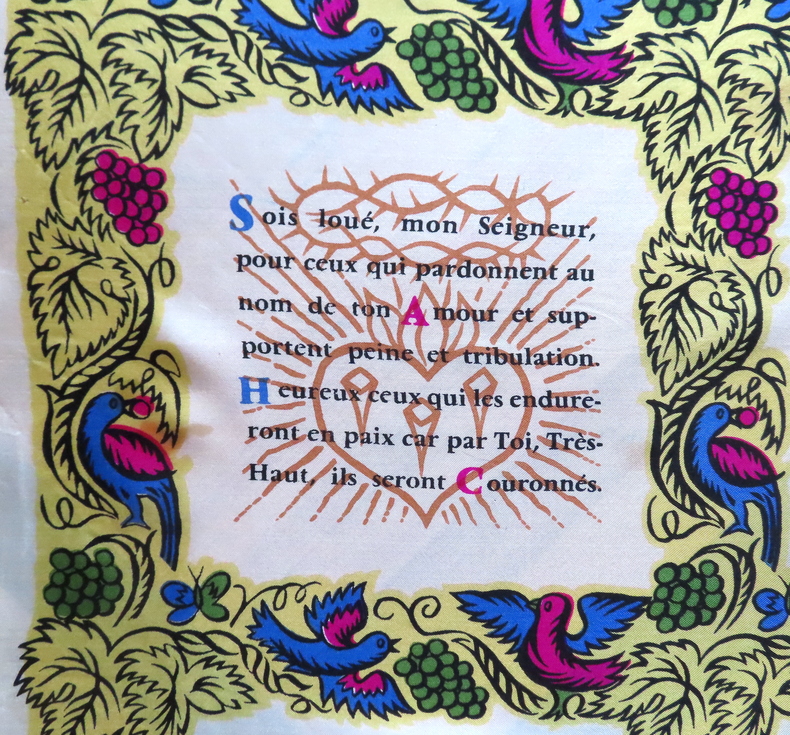 Sois loué, mon Seigneur,
pour ceux qui pardonnent au
nom de ton Amour et sup-
portent peine et tribulation.
Heureux ceux qui les endure-
ront en paix car par Toi, Très-
Haut, ils seront Couronnés.